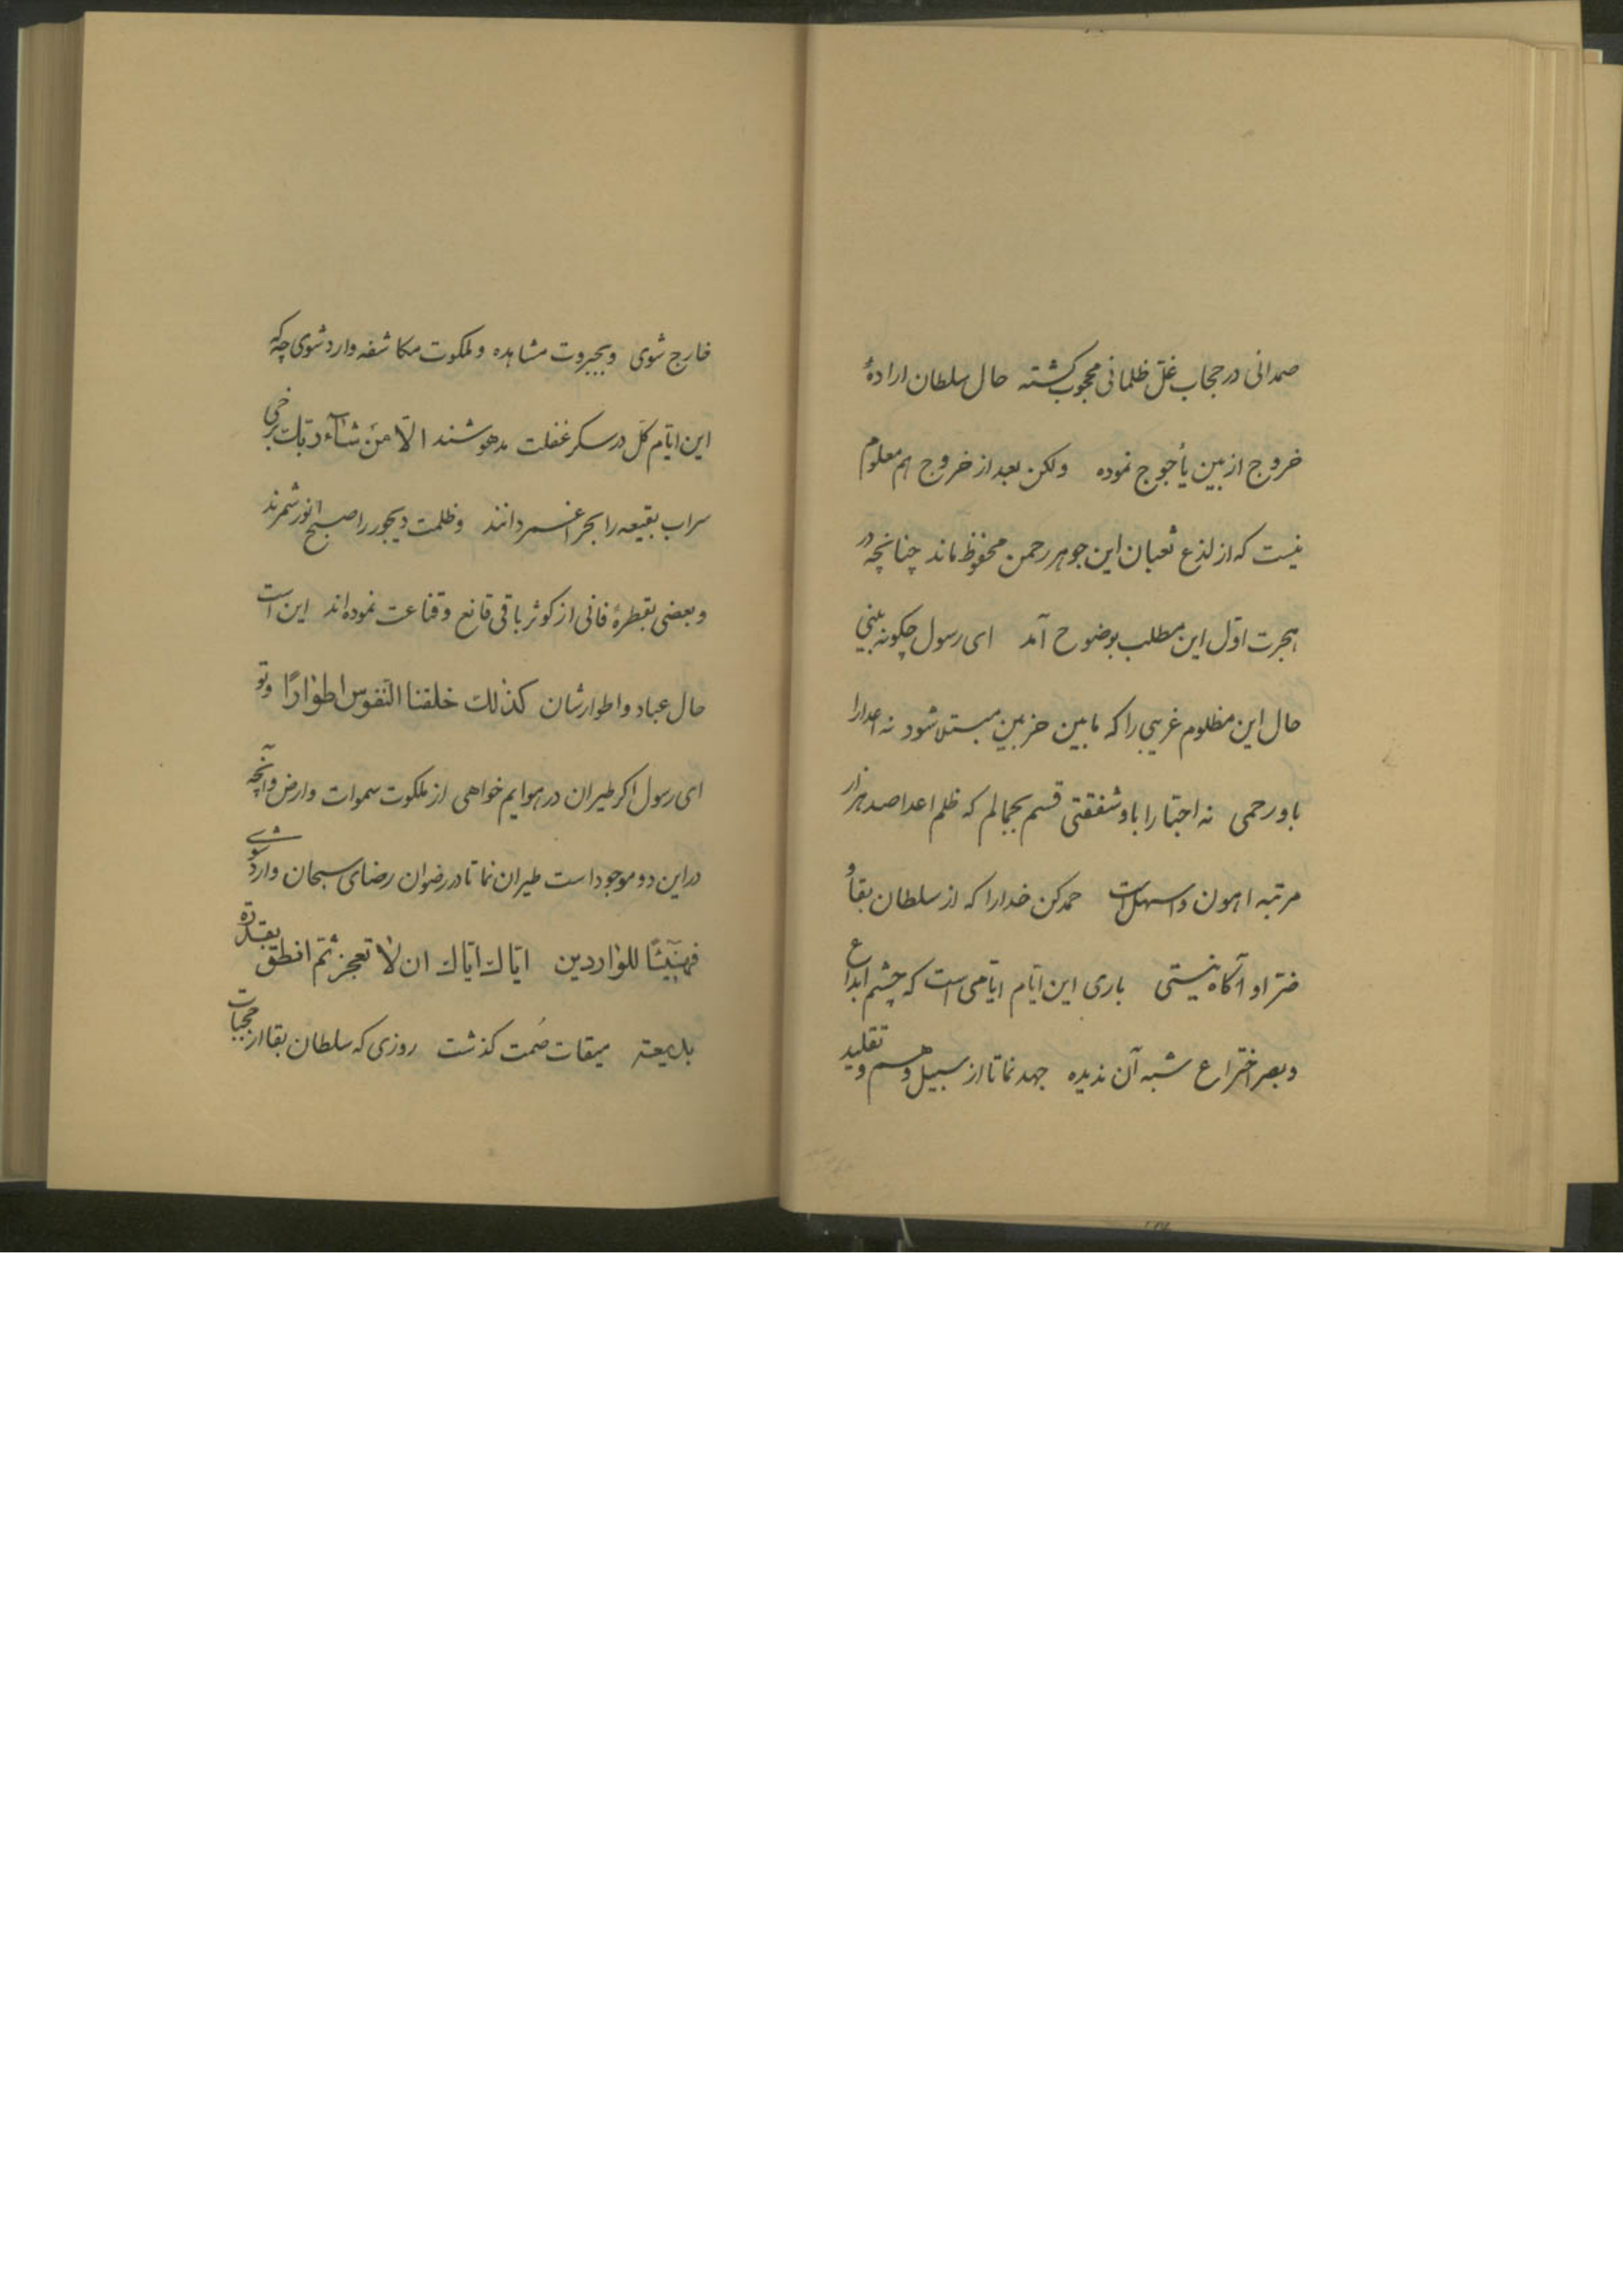 صمدانی در حجاب غلّ ظلمانی محجوب کشته حال سلطان ارادهٔ
خروج از بین یأجوج نموده ولکن بعد از خروج هم معلوم
نیست که از لذع ثعبان این جوهر رحمن محفوظ ماند چنانچه در
هجرت اوّل این مطلب بوضوح آمد ای رسول چکونه بینی
حال این مظلوم غریبی را که مابین حزبین مبتلا شود نه اعدا را
باو رحمی نه احبّا را باو شفقتی قسم بجمالم که ظلم اعدا صد هزار
مرتبه اهون و اسهل است حمد کن خدا را که از سلطان بقا و
ضرّ او آکاه نیستی باری این ایّام ایّامی است که چشم ابداع
و بصر اختراع شبه آن ندیده جهد نما تا از سبیل وهم و تقلید
خارج شوی و بجبروت مشاهده و ملکوت مکاشفه وارد شوی چه که
این ایّام کلّ در سکر غفلت مدهوشند الّا من شآء ربّک برخی
سراب بقیعه را بحر اغسر دانند و ظلمت دیجور را صبح انور شمرند
و بعضی بقطرهٔ فانی از کوثر باقی قانع و قناعت نموده‌اند این است
حال عباد و اطوارشان کذلک خلقنا النّفوس اطوارًا و تو
ای رسول اکر طیران در هوایم خواهی از ملکوت سموات و ارض و آنچه
در این دو موجود است طیران نما تا در رضوان رضای سبحان وارد شوی
فهنیئًا للواردین ایّاک ایّاک ان لا تعجز ثمّ انطق بقدرة
بدیعة میقات صُمت کذشت روزی که سلطان بقا از حجبات